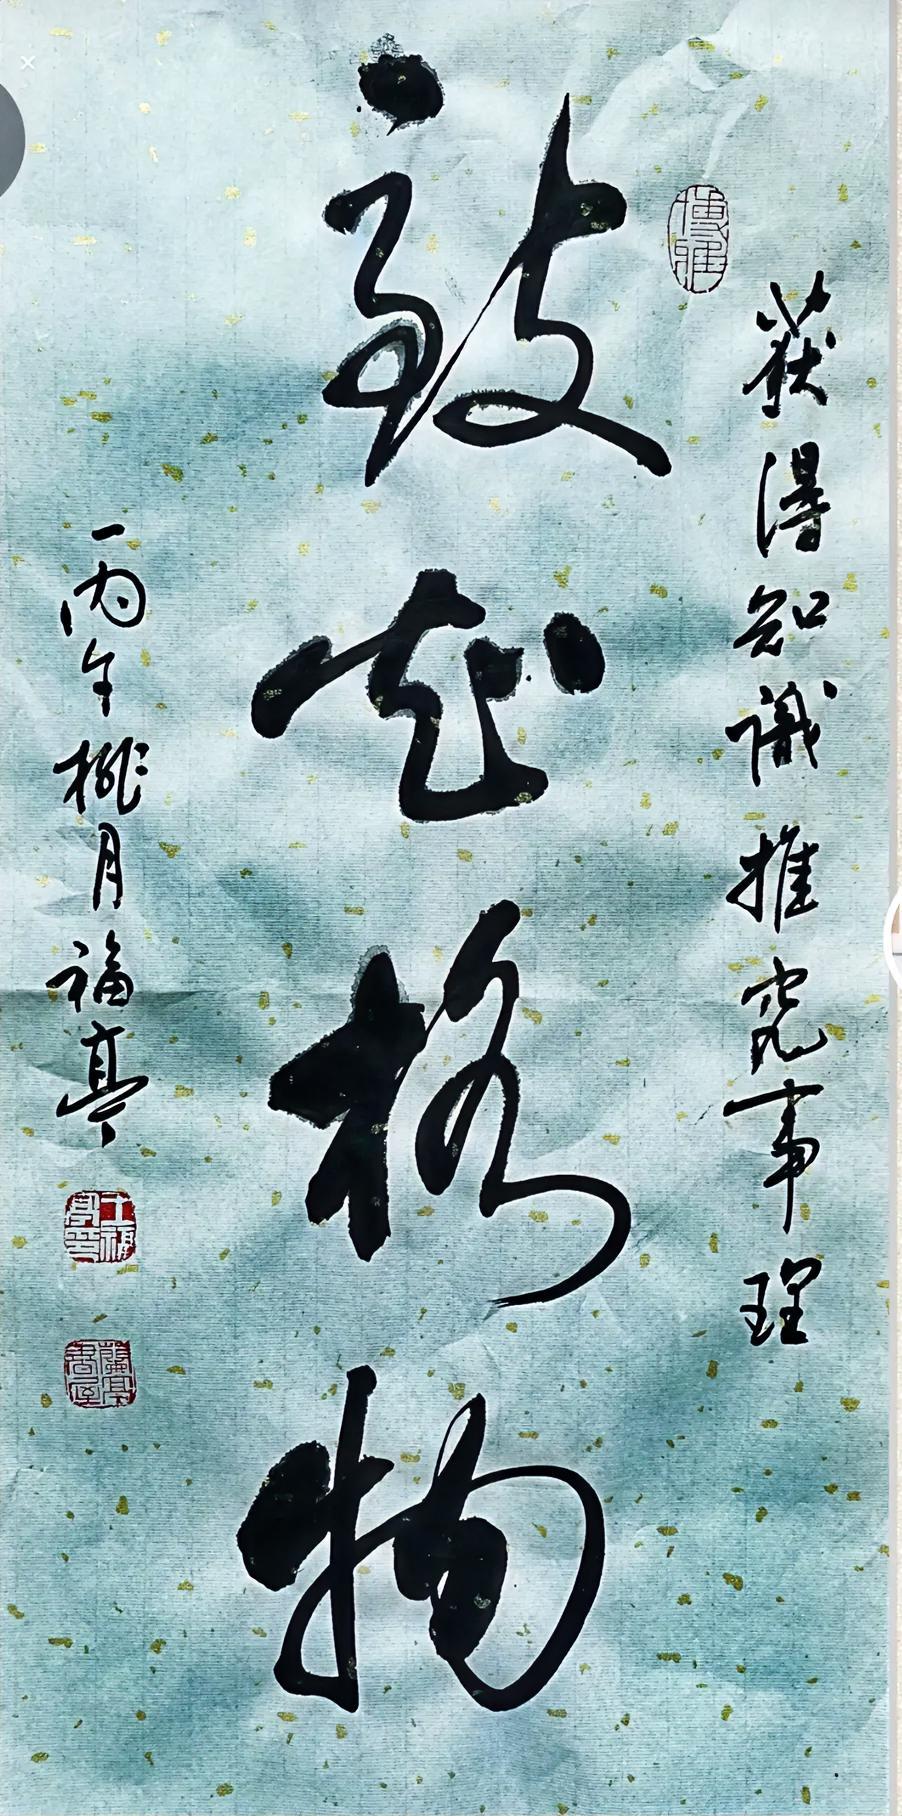 獲得知識推究事理
致知格物
丙午桃月福亭
博雅